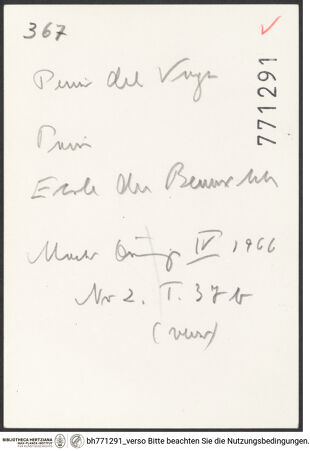 367
771291
Perin del Vaga
Paris
Ecole des Beaux Arts
Master Drawings IV 1966
Nr 2. T. 37b
(verso)
BIBLIOTHECA HERTZIANA
MAX-PLANCK-INSTITUT
FÜR KUNSTGESCHICHTE
bh771291_verso Bitte beachten Sie die Nutzungsbedingungen.